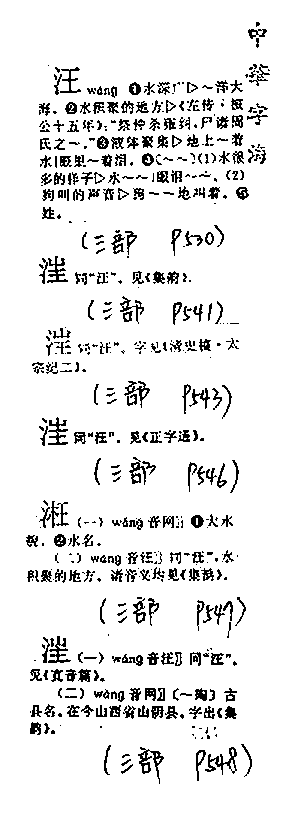 中華字海
汪 wāng ❶水深广▷~洋大
海。❷水积聚的地方▷《左传·桓
公十五年》:“祭仲杀雍纠,尸诸周
氏之~。”❸液体聚集▷地上~着
水|眼里~着泪。❹(~~)(1)水很
多的样子▷水~~|眼泪~~。(2)
狗叫的声音▷狗~~地叫着。❺
姓。
(三部 P530)
同“汪”。见《集韵》。
(三部 P541)
同“汪”。字见《清史稿·太
宗纪二》。
(三部 P543)
同“汪”。见《正字通》。
(三部 P546)
(一) wǎng 音网 ❶大水
貌。❷水名。
(二) wāng 音汪 同“汪”,水
积聚的地方。诸音义均见《集韵》。
(三部 P547)
(一) wāng 音汪 同“汪”。
见《直音篇》。
(二) wǎng 音网 (~陶)古
县名。在今山西省山阴县。字出《集
韵》。
(三部 P548)